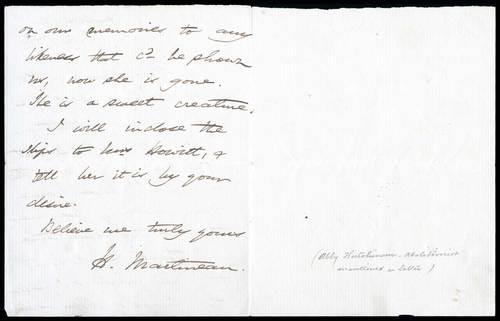 on our memories to any
likeness that cd be shown
us, now she is gone.
She is a sweet creature.
I will inclose the
slips to Mrs Howitt, &
tell her it is by your
desire.
Believe me truly yours
H. Martineau.
(Abby Hutchinson - Abolitionist
mentioned in letter)